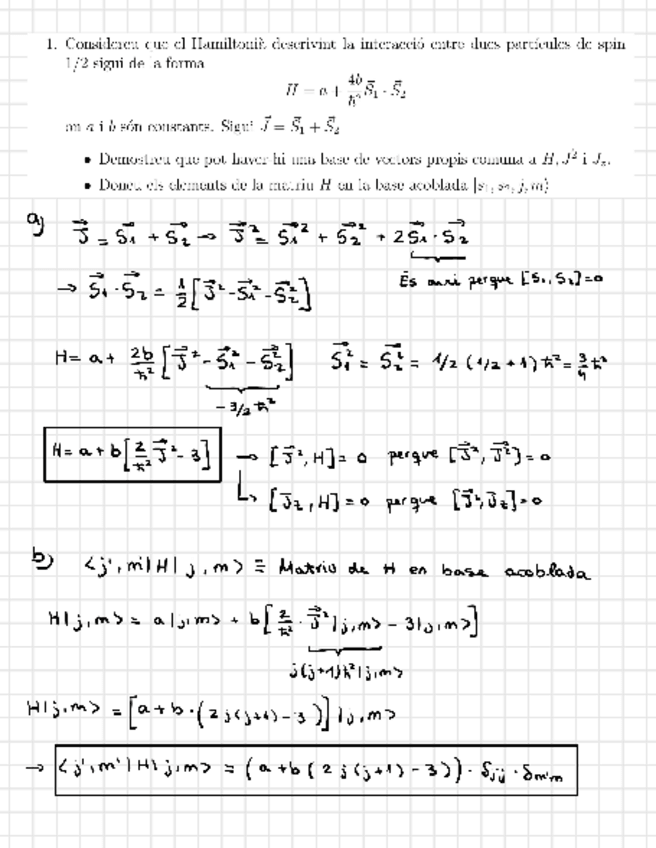 1. Considereu que el Hamiltonià descrivint la interacció entre dues partícules de spin
1/2 sigui de la forma
H = a + 4b/ℏ² S⃗₁ · S⃗₂
on a i b són constants. Sigui J⃗ = S⃗₁ + S⃗₂
• Demostreu que pot haver-hi una base de vectors propis comuna a H, J² i J_z.
• Doneu els elements de la matriu H en la base acoblada |s₁, s₂, j, m⟩
a) J⃗ = S⃗₁ + S⃗₂ → J⃗² = S⃗₁² + S⃗₂² + 2S⃗₁·S⃗₂
Es així perque [S₁, S₂] = 0
→ S⃗₁·S⃗₂ = 1/2 [J⃗² - S⃗₁² - S⃗₂²]
H = a + 2b/ℏ² [J⃗² - S⃗₁² - S⃗₂²] S⃗₁² = S⃗₂² = 1/2 (1/2 + 1) ℏ² = 3/4 ℏ²
-3/2 ℏ²
H = a + b [2/ℏ² J⃗² - 3] → [J⃗², H] = 0 perque [J⃗², J⃗²] = 0
↳ [J_z, H] = 0 perque [J⃗², J_z] = 0
b) <j', m'|H|j, m> ≡ Matriu de H en base acoblada
H|j, m> = a|j, m> + b[2/ℏ² · J⃗²|j, m> - 3|j, m>]
j(j+1)ℏ²|j, m>
H|j, m> = [a + b · (2j(j+1) - 3)] |j, m>
→ <j', m'|H|j, m> = (a + b(2j(j+1) - 3)) · δ_j'j · δ_m'm